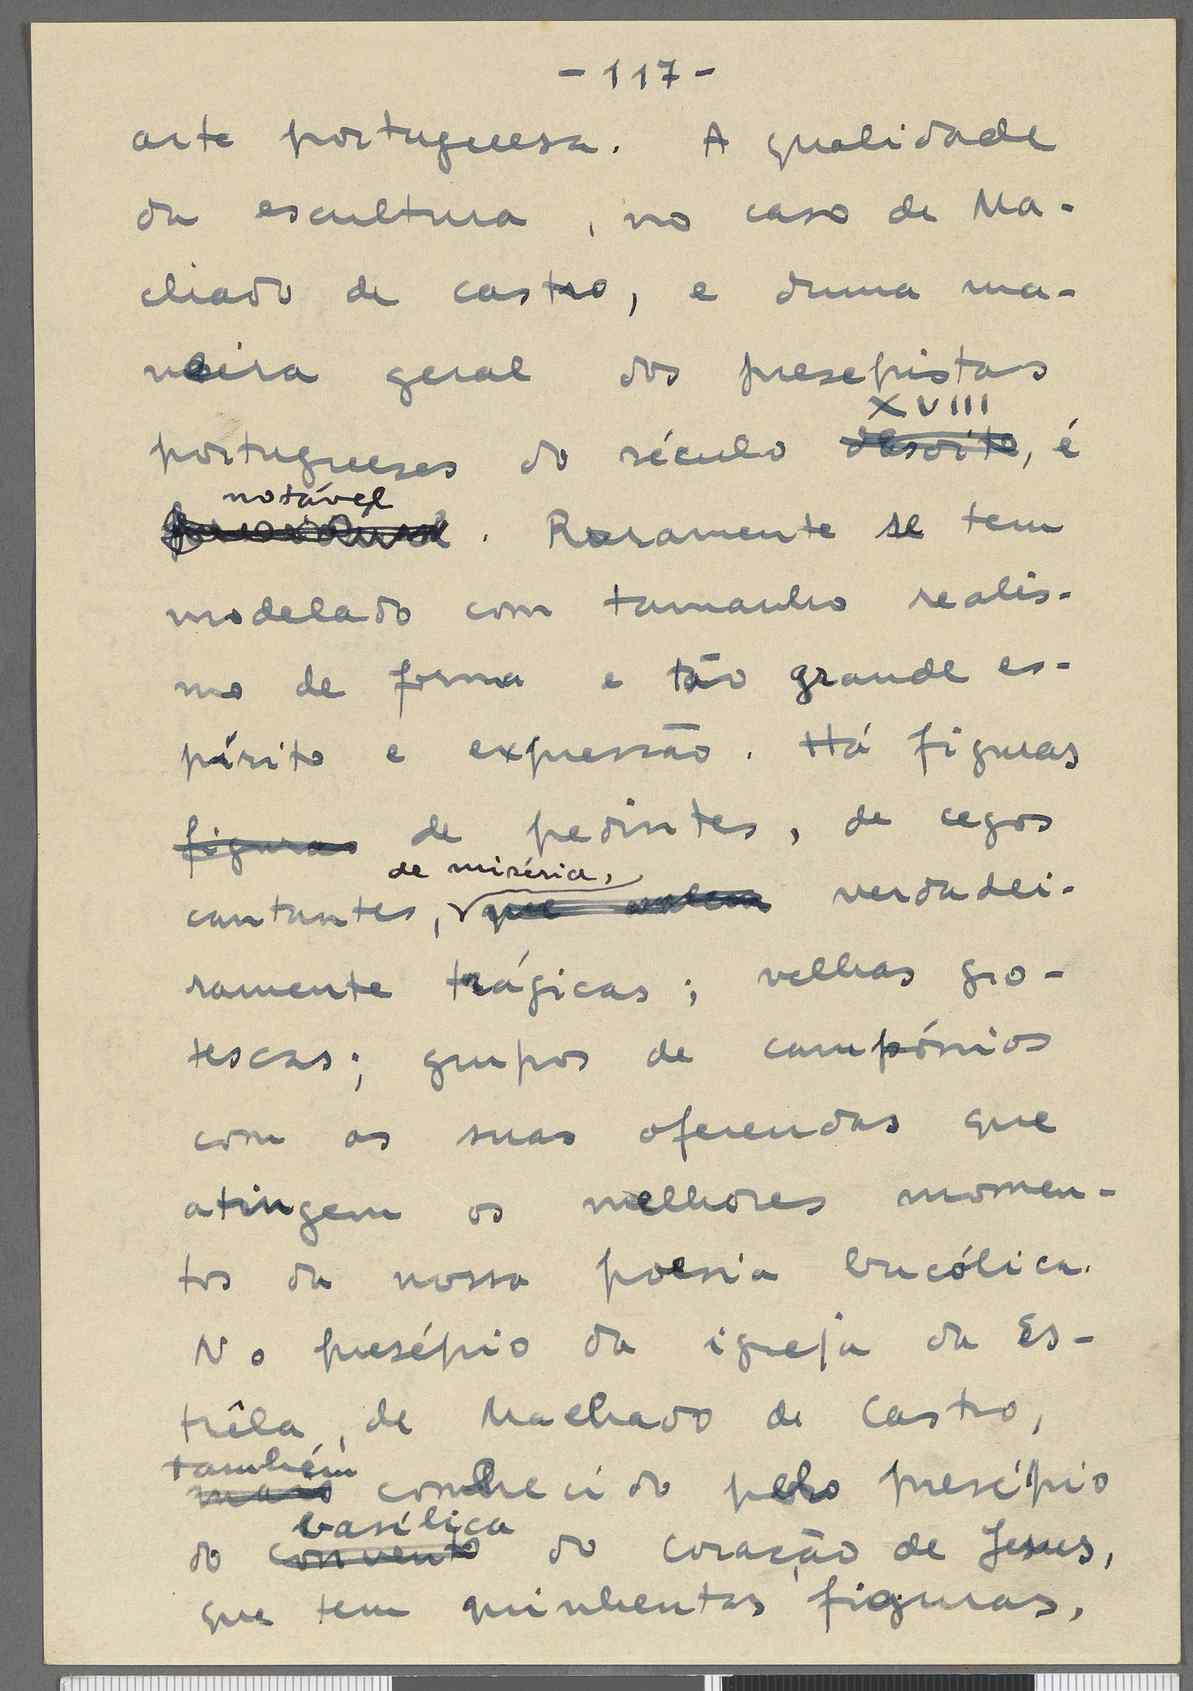 - 117 -
arte portuguesa. A qualidade
da escultura, no caso de Ma-
chado de castro, e duma ma-
neira geral dos presepistas
XVIII
portugueses do século dezoito, é
notável
. Raramente se tem
modelado com tamanho realis-
mo de forma e tão grande es-
pírito e expressão. Há figuras
figuras de pedintes, de cegos
de miséria,
cantantes, que valem verdadei-
ramente trágicas; velhas gro-
tescas; grupos de campónios
com as suas oferendas que
atingem os melhores momen-
tos da nossa poesia bucólica.
No presépio da igreja da Es-
trêla, de Machado de Castro,
também
mais conhecido pelo presépio
basílica
do convento do coração de Jesus,
que tem quinhentas figuras,